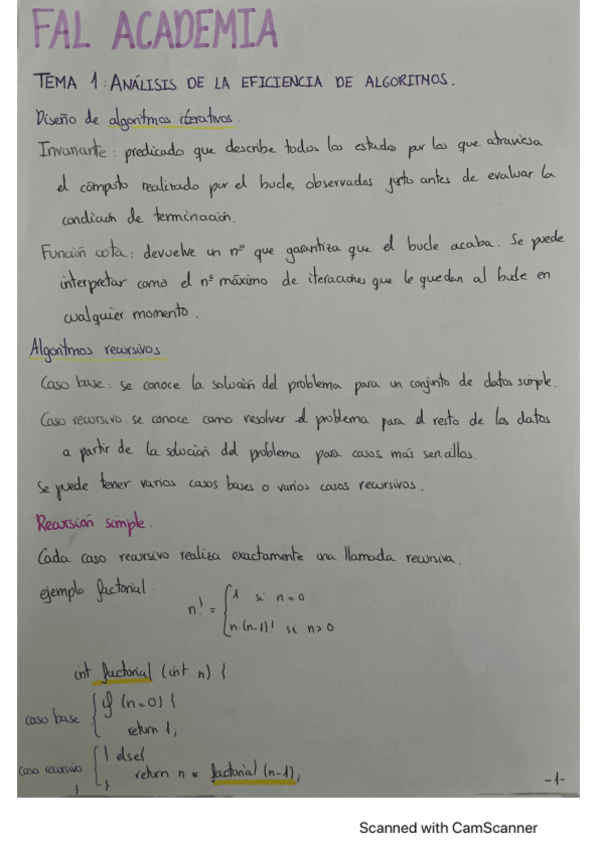 FAL ACADEMIA
TEMA 1: ANÁLISIS DE LA EFICIENCIA DE ALGORITMOS.
Diseño de algoritmos iterativos.
Invariante: predicado que describe todos los estados por los que atraviesa
el cómputo realizado por el bucle, observados justo antes de evaluar la
condición de terminación.
Función cota: devuelve un nº que garantiza que el bucle acaba. Se puede
interpretar como el nº máximo de iteraciones que le quedan al bucle en
cualquier momento.
Algoritmos recursivos
Caso base: se conoce la solución del problema para un conjunto de datos simple.
Caso recursivo: se conoce como resolver el problema para el resto de los datos
a partir de la solución del problema para casos más sencillos.
Se puede tener varios casos bases o varios casos recursivos.
Recursión simple.
Cada caso recursivo realiza exactamente una llamada recursiva.
ejemplo factorial:
n! = { 1 si n=0
n·(n-1)! si n>0
int factorial (int n) {
caso base { if (n=0) {
return 1;
caso recursivo { } else{
return n * factorial (n-1);
}
}
-1-
Scanned with CamScanner